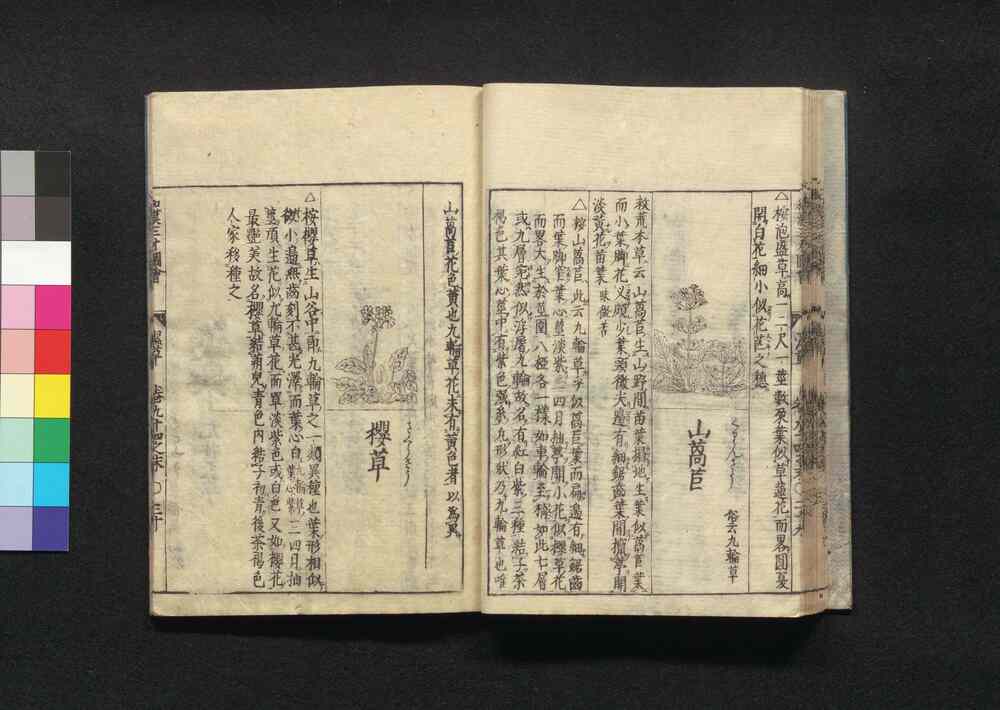 △按砲盛草高一二尺一莖數朶葉似草蘆花而畧圓夏
開白花細小似花芒之穗
山萵苣
くりんさう
俗云九輪草
救荒本草云山萵苣生山野間苗葉搨地生葉似萵苣葉
而小葉脚花叉頗少葉頭微尖邊有細鋸齒葉間攛葶開
淡黃花苗葉味微苦
△按山萵苣此云九輪草乎似萵苣葉而扁邊有細鋸齒
而葉脚窄葉心莖淡紫三四月抽莖開小花似櫻草花
而畧大生於莖圍八椏各一樣如車輪至梢如此七層
或九層宛然似浮屠九輪故名有紅白紫三種結子茶
褐色其葉心莖中有紫色強系九形狀乃九輪草也唯
山萵苣花色黃也九輪草花未有黃色者以爲異
櫻草
さくらさう
△按櫻草生山谷中即九輪草之一類異種也葉形相似
微小邊無齒刻不甚光澤而葉心白九輪草葉心紫二三四月抽
莖頂生花似九輪草花而單淡紫色或白色又如櫻花
最艷美故名櫻草結萌兒青色內結子初青後茶褐色
人家移種之
和漢三才圖會
濕草
卷九十四之末
○三十